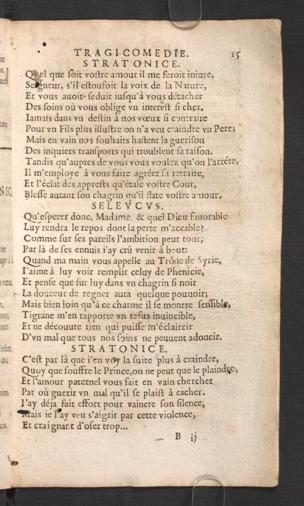 TRAGI-COMEDIE. 15
STRATONICE.
Quel que soit vostre amour il me feroit iniure,
Seigneur, s'il estoufoit la voix de la Nature,
Et vous auoit seduit iusqu'à vous détacher
Des soins où vous oblige vn interest si cher.
Iamais dans vn destin à nos vœux si contraire
Pour vn Fils plus illustre on n'a veu craindre vn Pere;
Mais en vain nos souhaits hastent la guerison
Des inquiets transports qui troublent sa raison.
Tandis qu'aupres de vous vous voulez qu'on l'arréte,
Il m'employe à vous faire agréer sa retraite,
Et l'éclat des apprests qu'étale vostre Cour,
Blesse autant son chagrin qu'il flate vostre amour.
SELEVCVS.
Qu'esperer donc, Madame, & quel Dieu fauorable
Luy rendra le repos dont la perte m'accable?
Comme sur ses pareils l'ambition peut tout,
Par là de ses ennuis i'ay crû venir à bout:
Quand ma main vous appelle au Trône de Syrie,
I'aime à luy voir remplir celuy de Phenicie,
Et pense que sur luy dans vn chagrin si noir
La douceur de regner aura quelque pouuoir;
Mais bien loin qu'à ce charme il se montre sensible,
Tigrane m'en rapporte vn refus inuincible,
Et ne décoüure rien qui puisse m'éclaircir
D'vn mal que tous nos soins ne peuuent adoucir.
STRATONICE.
C'est par là que i'en voy la suite plus à craindre,
Quoy que souffre le Prince, on ne peut que le plaindre,
Et l'amour paternel vous fait en vain chercher
Par où guerir vn mal qu'il se plaist à cacher.
I'ay déja fait effort pour vaincre son silence,
Mais ie l'ay veu s'aigrir par cette violence,
Et craignant d'oser trop...
B ij